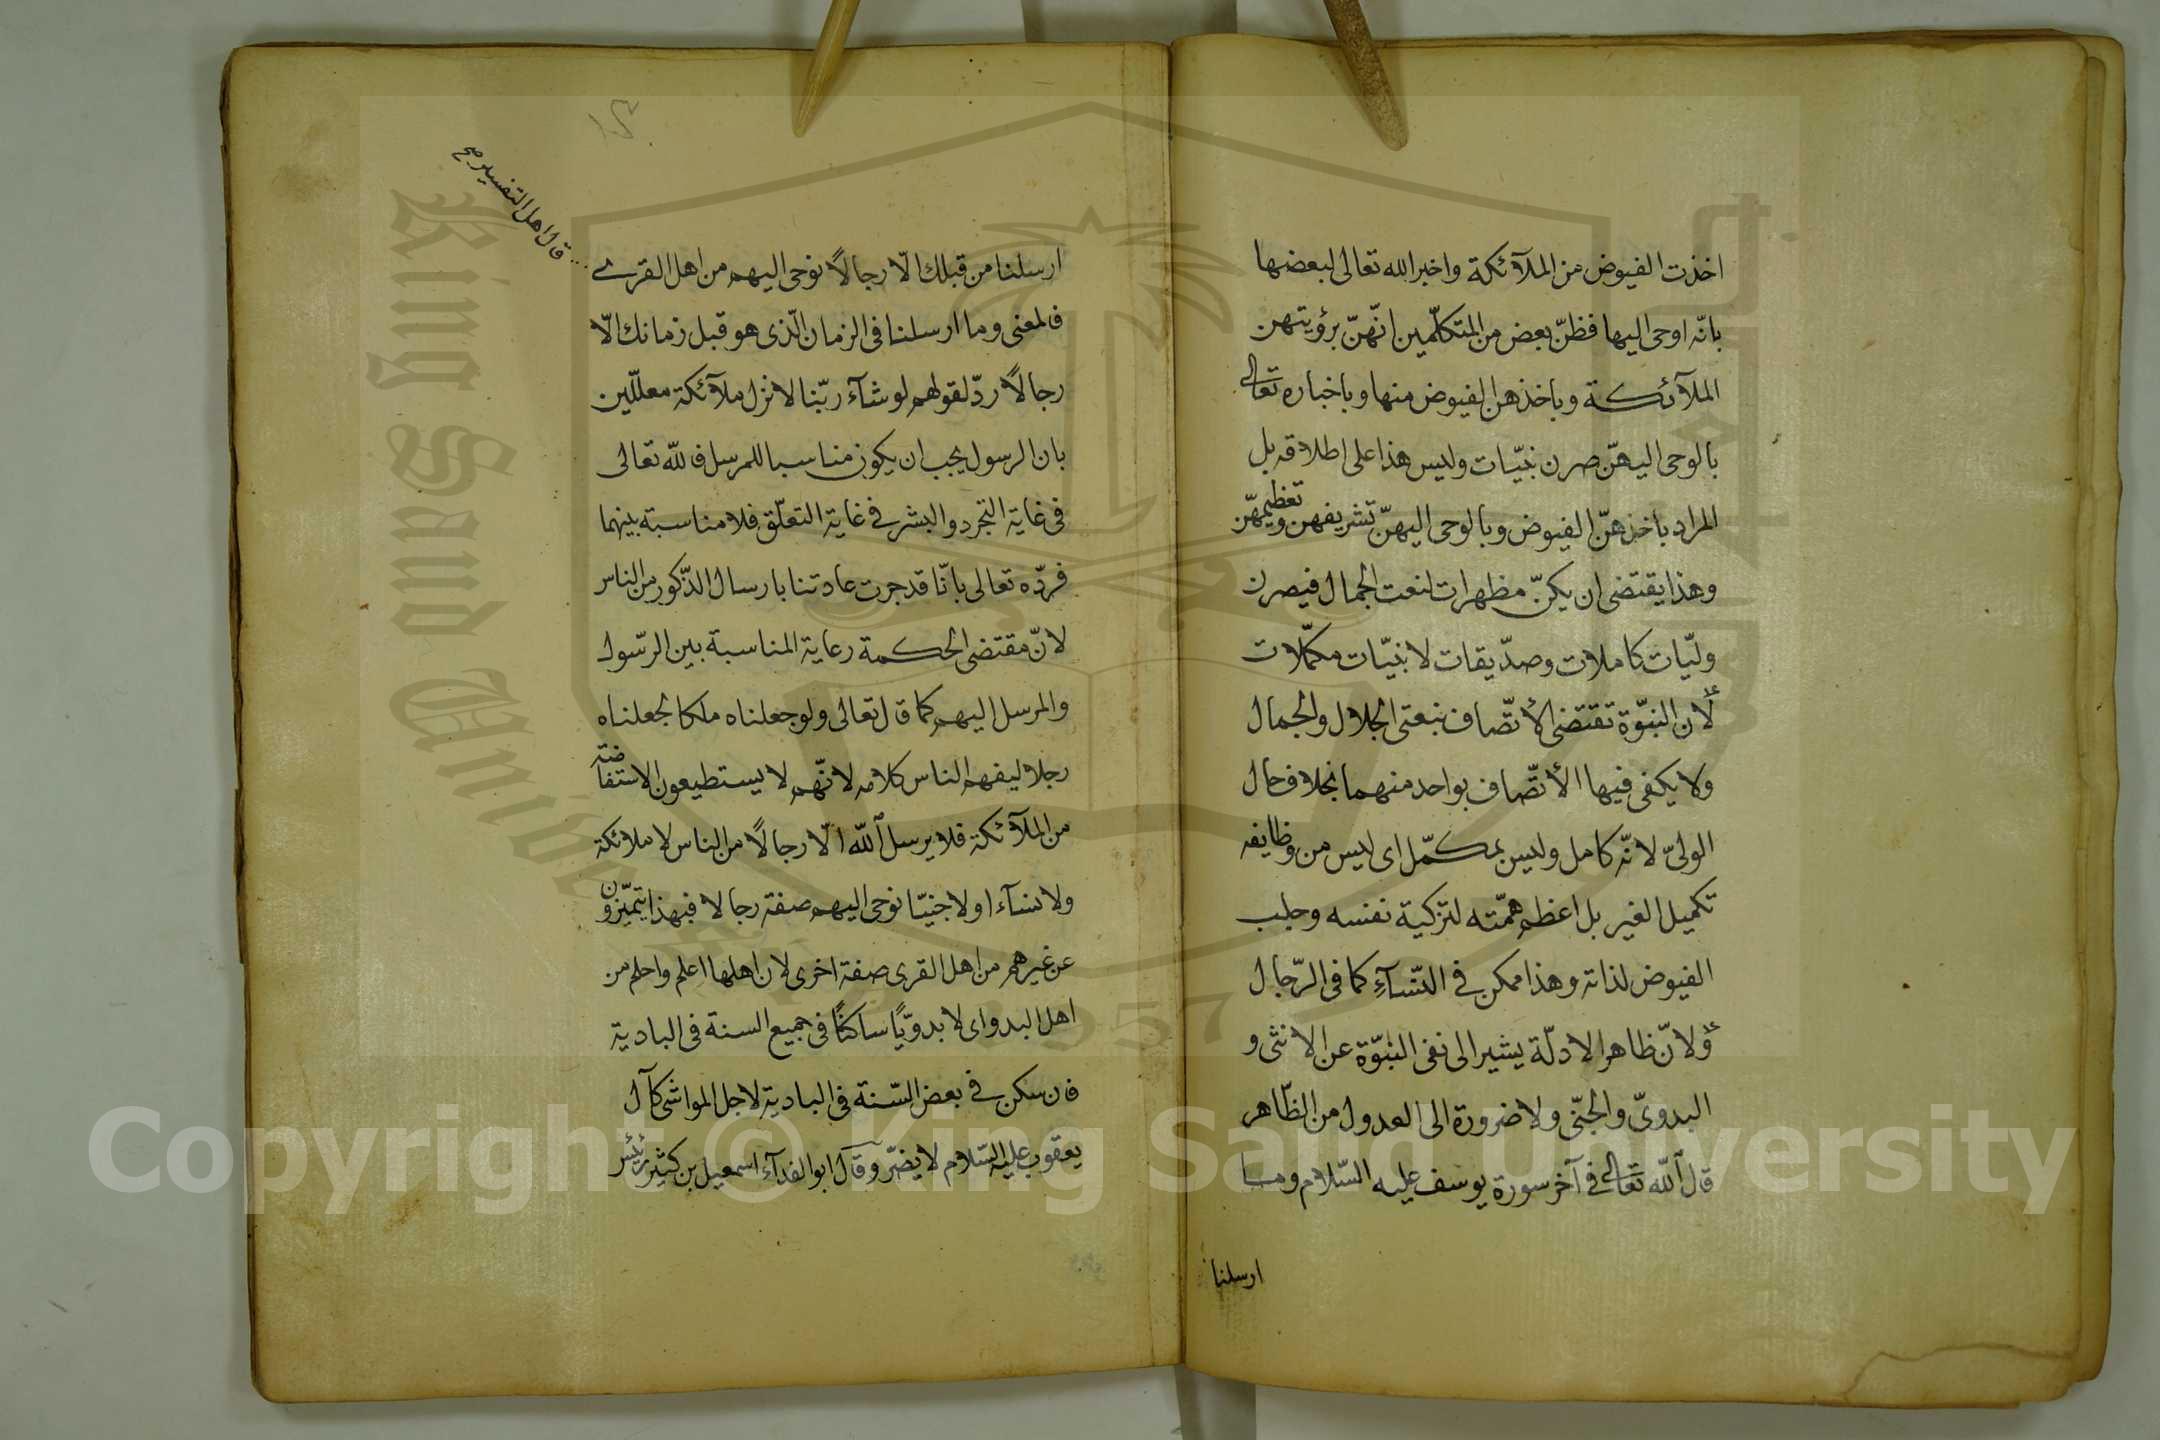 اخذت الفيوض من الملآئكة واخبر الله تعالى لبعضها
بانّه اوحى اليها فظنّ بعض من المتكلّمين انّهنّ برؤيتهن
الملآئكة وباخذهن الفيوض منها وباخباره تعالى
بالوحى اليهنّ صرن نبيّات وليس هذا على اطلاقه بل
المراد باخذهنّ الفيوض وبالوحى اليهنّ تشريفهن وتعظيمهنّ
وهذا يقتضى ان يكنّ مظهرات لنعت الجمال فيصرن
وليّات كاملات وصدّيقات لا نبيّات مكمّلات
لأن النبوّة تقتضى الأتّصاف بنعتى الجلال والجمال
ولا يكفى فيها الأتّصاف بواحد منهما بخلاف حال
الولىّ لانّه كامل وليس بمكمّل اى ليس من وظايفه
تكميل الغير بل اعظم همّته لتزكية نفسه وجلب
الفيوض لذاته وهذا ممكن فى النّسآءِ كما فى الرّجال
ولانّ ظاهر الادلّة يشير الى نفى النبوّة عن الانثى و
البدوىّ والجنّى ولا ضرورة الى العدول من الظّاهر
قال الله تعالى فى آخر سورة يوسف عليه السّلام وما
ارسلنا
قال اهل التفسير صح
ارسلنا من قبلك الّا رجالاً نوحى اليهم من اهل القرى
فالمعنى وما ارسلنا فى الزمان الّذى هو قبل زمانك الّا
رجالاً ردّ لقولهم لو شآء ربّنا لانزل ملآئكة معلّلين
بان الرسول يجب ان يكون مناسبا للمرسل فالله تعالى
فى غاية التجرد والبشر فى غاية التعلّق فلا مناسبة بينهما
فردّه تعالى بانّا قد جرت عادتنا بارسال الذّكور من الناس
لانّ مقتضى الحكمة رعاية المناسبة بين الرّسول
والمرسل اليهم كما قال تعالى ولو جعلناه ملكا لجعلناه
رجلا ليفهم الناس كلامه لانّهم لا يستطيعون الاستفاضة
من الملآئكة فلا يرسل الله الّا رجالاً من الناس لا ملائكة
ولا نسآء ولا جنيّا نوحى اليهم صفة رجالا فبهذا يتميّزون
عن غيرهم من اهل القرى صفة اخرى لان اهلها اعلم واحلم من
اهل البدو اى لا بدويّاً ساكنًا فى جميع السنة فى البادية
فان سكن فى بعض السّنة فى البادية لاجل المواشى كآل
يعقوب عليه السّلام لا يضرّ وقال ابو الفدآء اسمعيل بن كثير رئيس
Copyright © King Saud University
King Saud University
1957